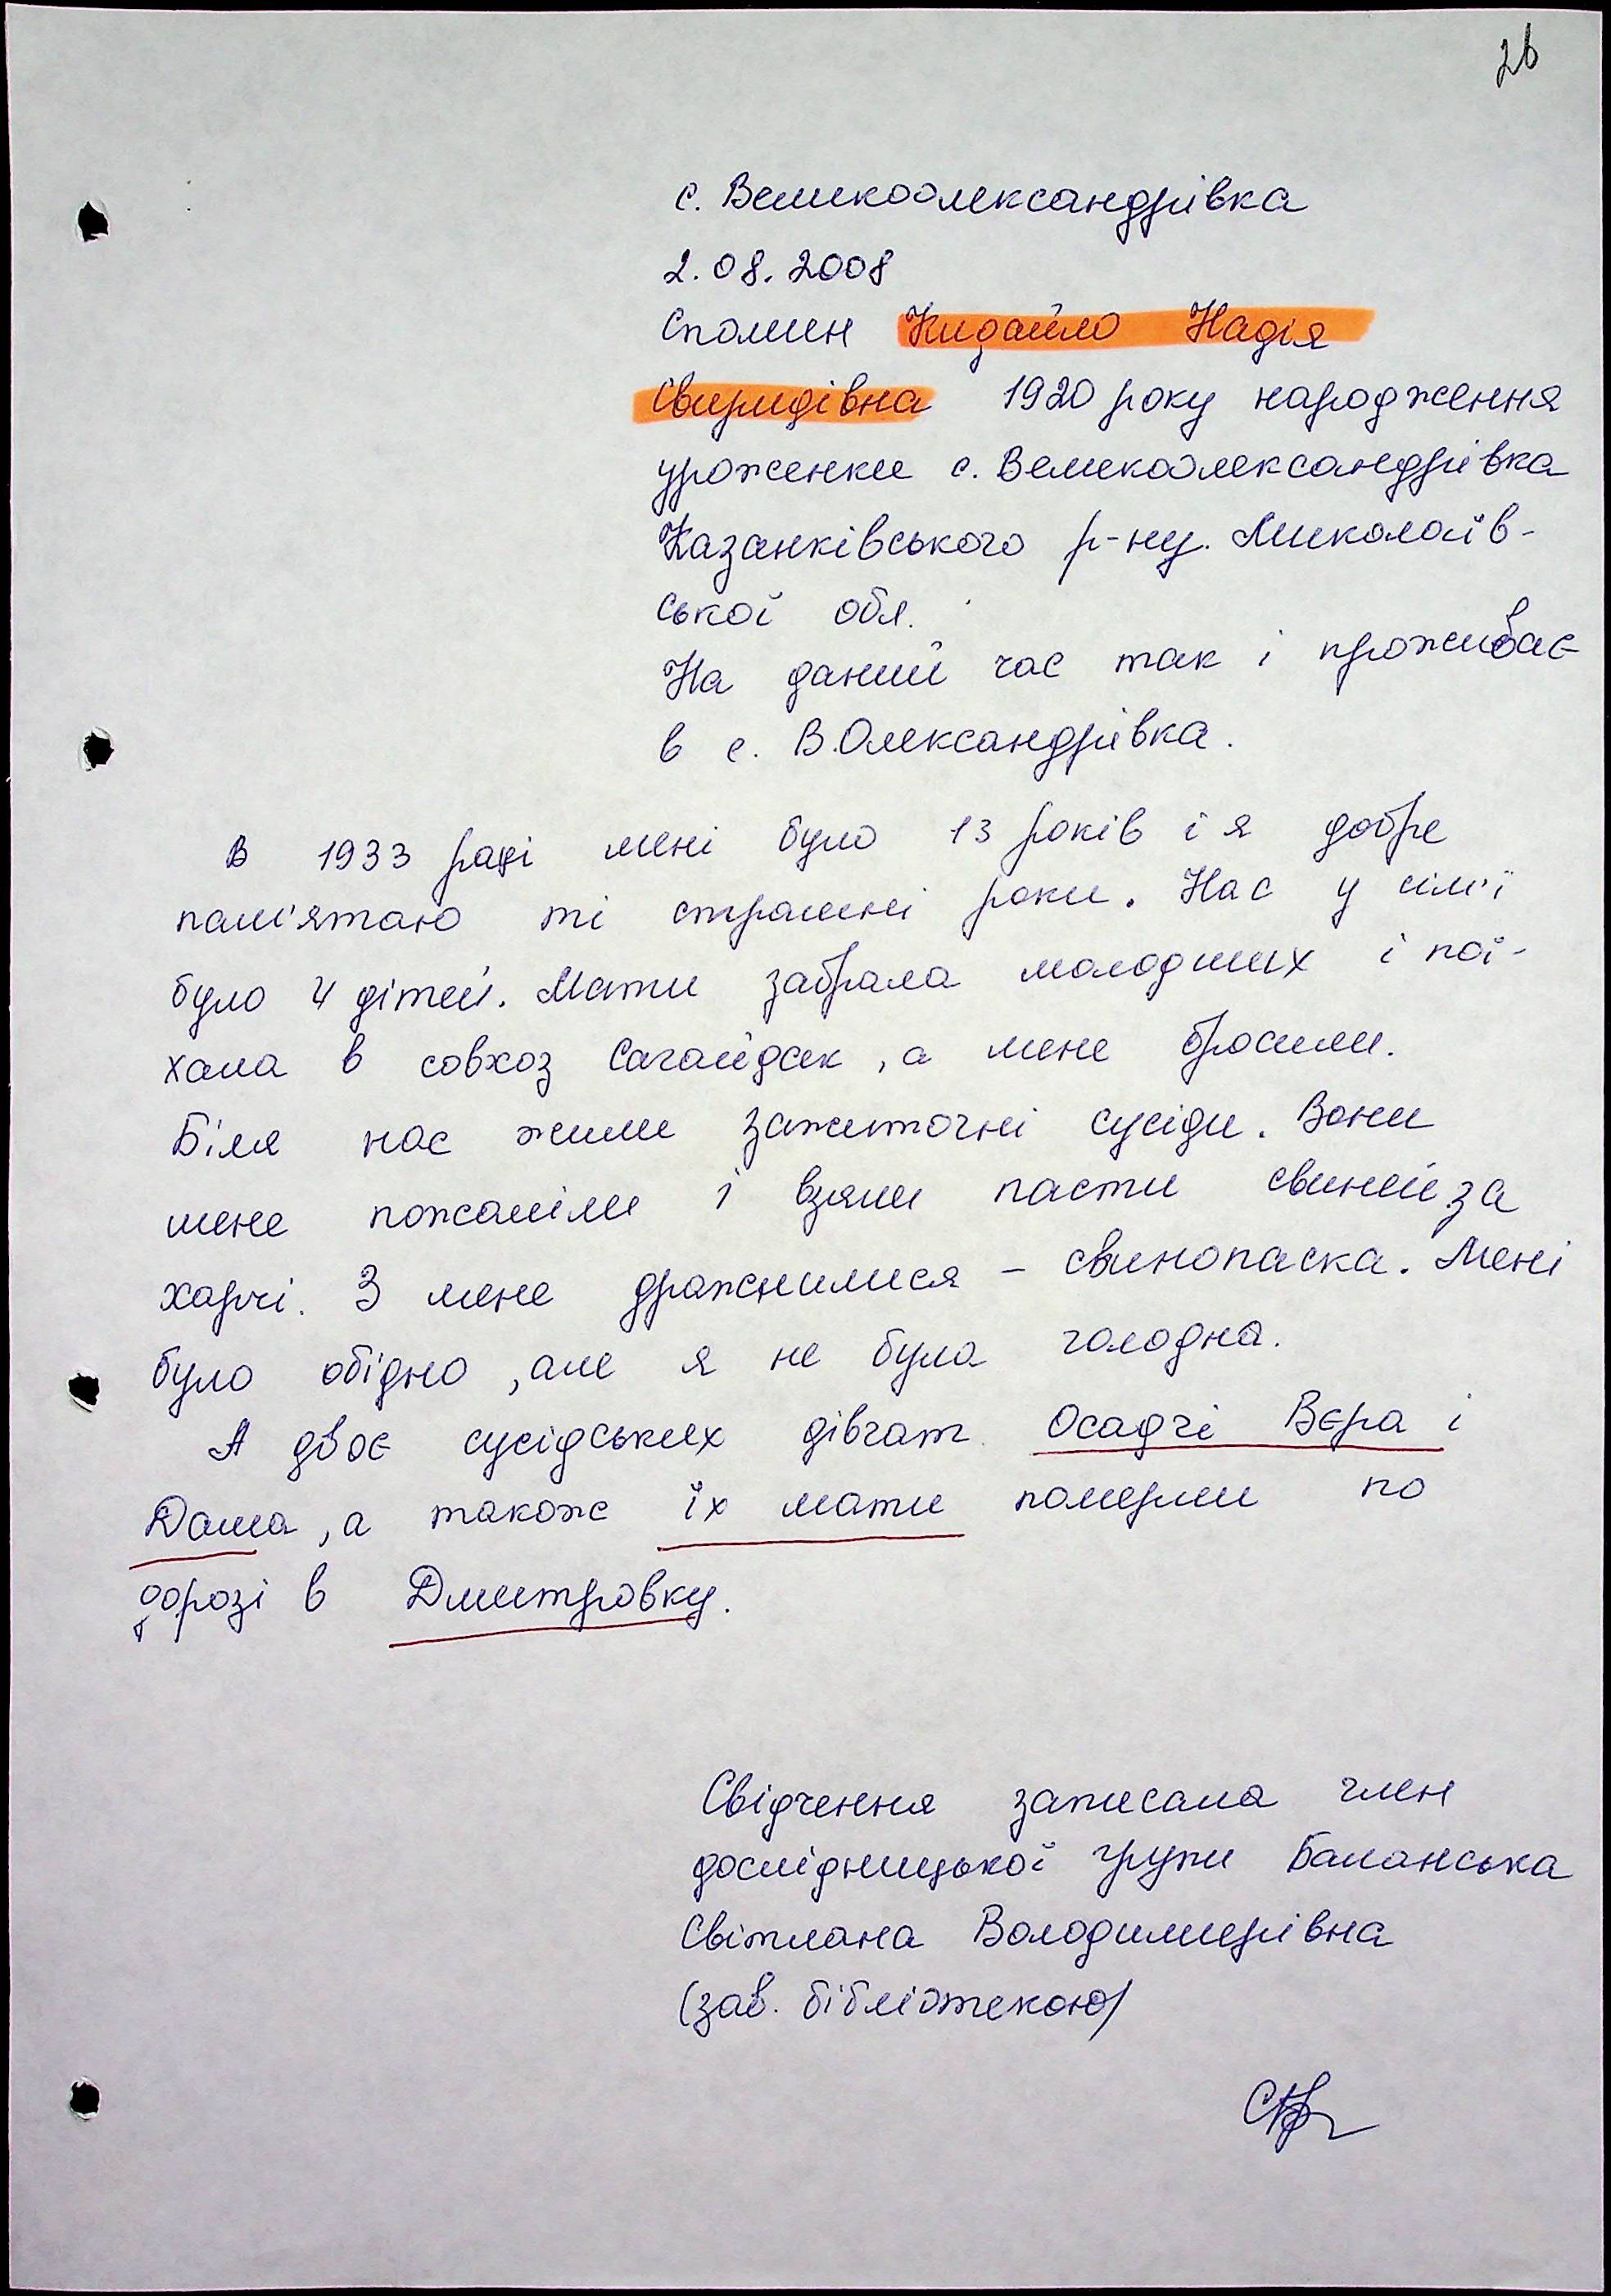 26
с. Великоолександрівка
2.08.2008
Спомин Кидайло Надія
Свиридівна 1920 року народження
уроженки с. Великоолександрівка
Казанківського р-ну. Миколаїв-
ської обл.
На даний час так і проживає
в с. В.Олександрівка.
В 1933 році мені було 13 років і я добре
пам'ятаю ті страшні роки. Нас у сім'ї
було 4 дітей. Мати забрала молодших і пої-
хала в совхоз Сагайдак, а мене бросили.
Біля нас жили зажиточні сусіди. Вони
мене пожаліли і взяли пасти свиней за
харчі. З мене дражнилися - свинопаска. Мені
було обідно, але я не була голодна.
А двоє сусідських дівчат Осадчі Вєра і
Даша, а також їх мати померли по
дорозі в Дмитровку.
Свідчення записала член
дослідницької групи Баланська
Світлана Володимирівна
(зав. бібліотекою)